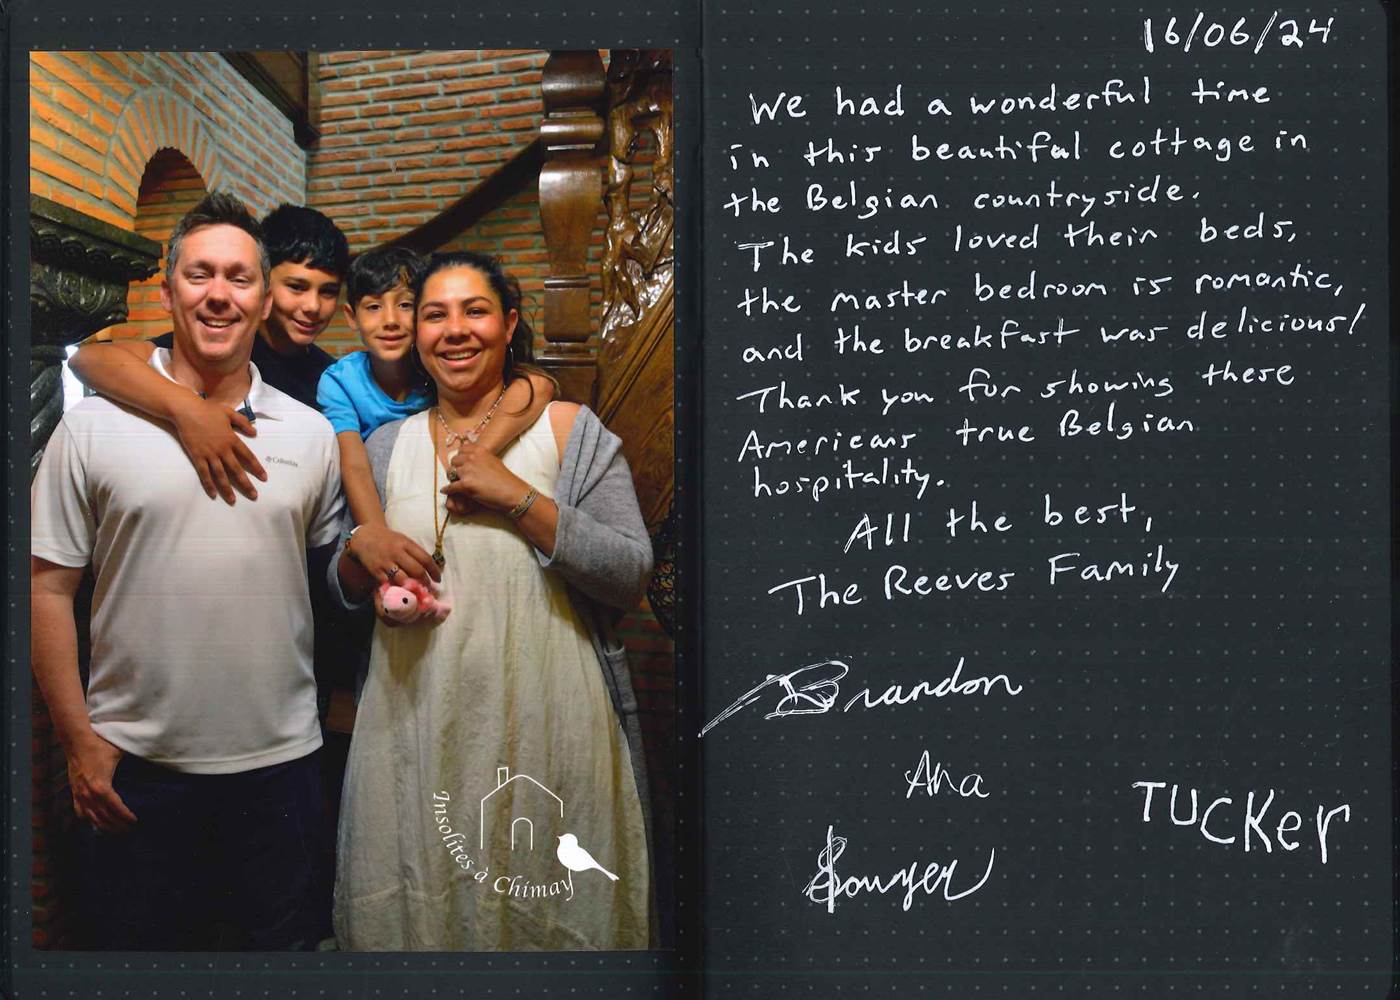 Columbia
Insolites à Chimay
16/06/24
We had a wonderful time
in this beautiful cottage in
the Belgian countryside.
The kids loved their beds,
the master bedroom is romantic,
and the breakfast was delicious!
Thank you for showing these
Americans true Belgian
hospitality.
All the best,
The Reeves Family
Brandon
Ana
TUCKer
Sawyer